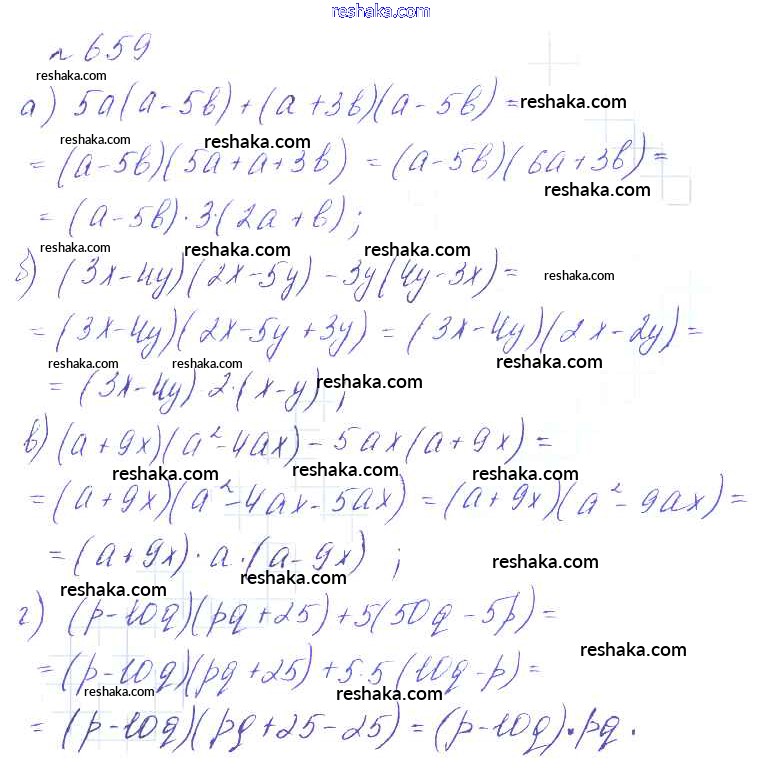 reshaka.com
№ 659
reshaka.com
а) 5a(a-5b)+(a+3b)(a-5b)=
reshaka.com
reshaka.com reshaka.com
=(a-5b)(5a+a+3b) =(a-5b)(6a+3b)=
reshaka.com
=(a-5b)·3·(2a+b);
reshaka.com reshaka.com reshaka.com
б) (3x-4y)(2x-5y)-3y(4y-3x)=
reshaka.com
=(3x-4y)(2x-5y+3y)=(3x-4y)(2x-2y)=
reshaka.com reshaka.com reshaka.com
=(3x-4y)·2·(x-y);
reshaka.com
в) (a+9x)(a²-4ax)-5ax(a+9x)=
reshaka.com reshaka.com
=(a+9x)(a²-4ax-5ax)=(a+9x)(a²-9ax)=
=(a+9x)·a·(a-9x);
reshaka.com
reshaka.com reshaka.com
г) (p-10q)(pq+25)+5(50q-5p)=
reshaka.com
=(p-10q)(pq+25)+5·5(10q-p)=
reshaka.com reshaka.com
=(p-10q)(pq+25-25)=(p-10q)·pq.